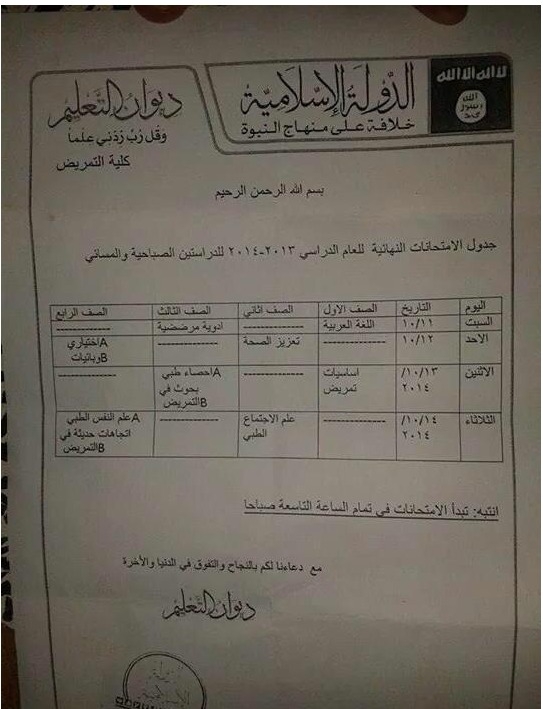 لا اله الا الله
الله
رسول
محمد
الدولة الإسلامية
خلافة على منهاج النبوة
ديوان التعليم
وقل رب زدني علما
كلية التمريض
بسم الله الرحمن الرحيم
جدول الامتحانات النهائية للعام الدراسي ٢٠١٣-٢٠١٤ للدراستين الصباحية والمسائي
اليوم التاريخ الصف الاول الصف اثاني الصف الثالث الصف الرابع
السبت ١٠/١١ اللغة العربية ------------- ادوية مرضضية -------------
الاحد ١٠/١٢ ------------- تعزيز الصحة ------------- Aاختياري
Bوبائيات
الاثنين ١٠/١٣/ اساسيات ------------- Aاحصاء طبي -------------
٢٠١٤ تمريض بحوث في
Bالتمريض
الثلاثاء ١٠/١٤/ ------------- علم الاجتماع ------------- Aعلم النفس الطبي
٢٠١٤ الطبي اتجاهات حديثة في
Bالتمريض
انتبه: تبدأ الامتحانات في تمام الساعة التاسعة صباحا
مع دعاءنا لكم بالنجاح والتفوق في الدنيا والأخرة
ديوان التعليم